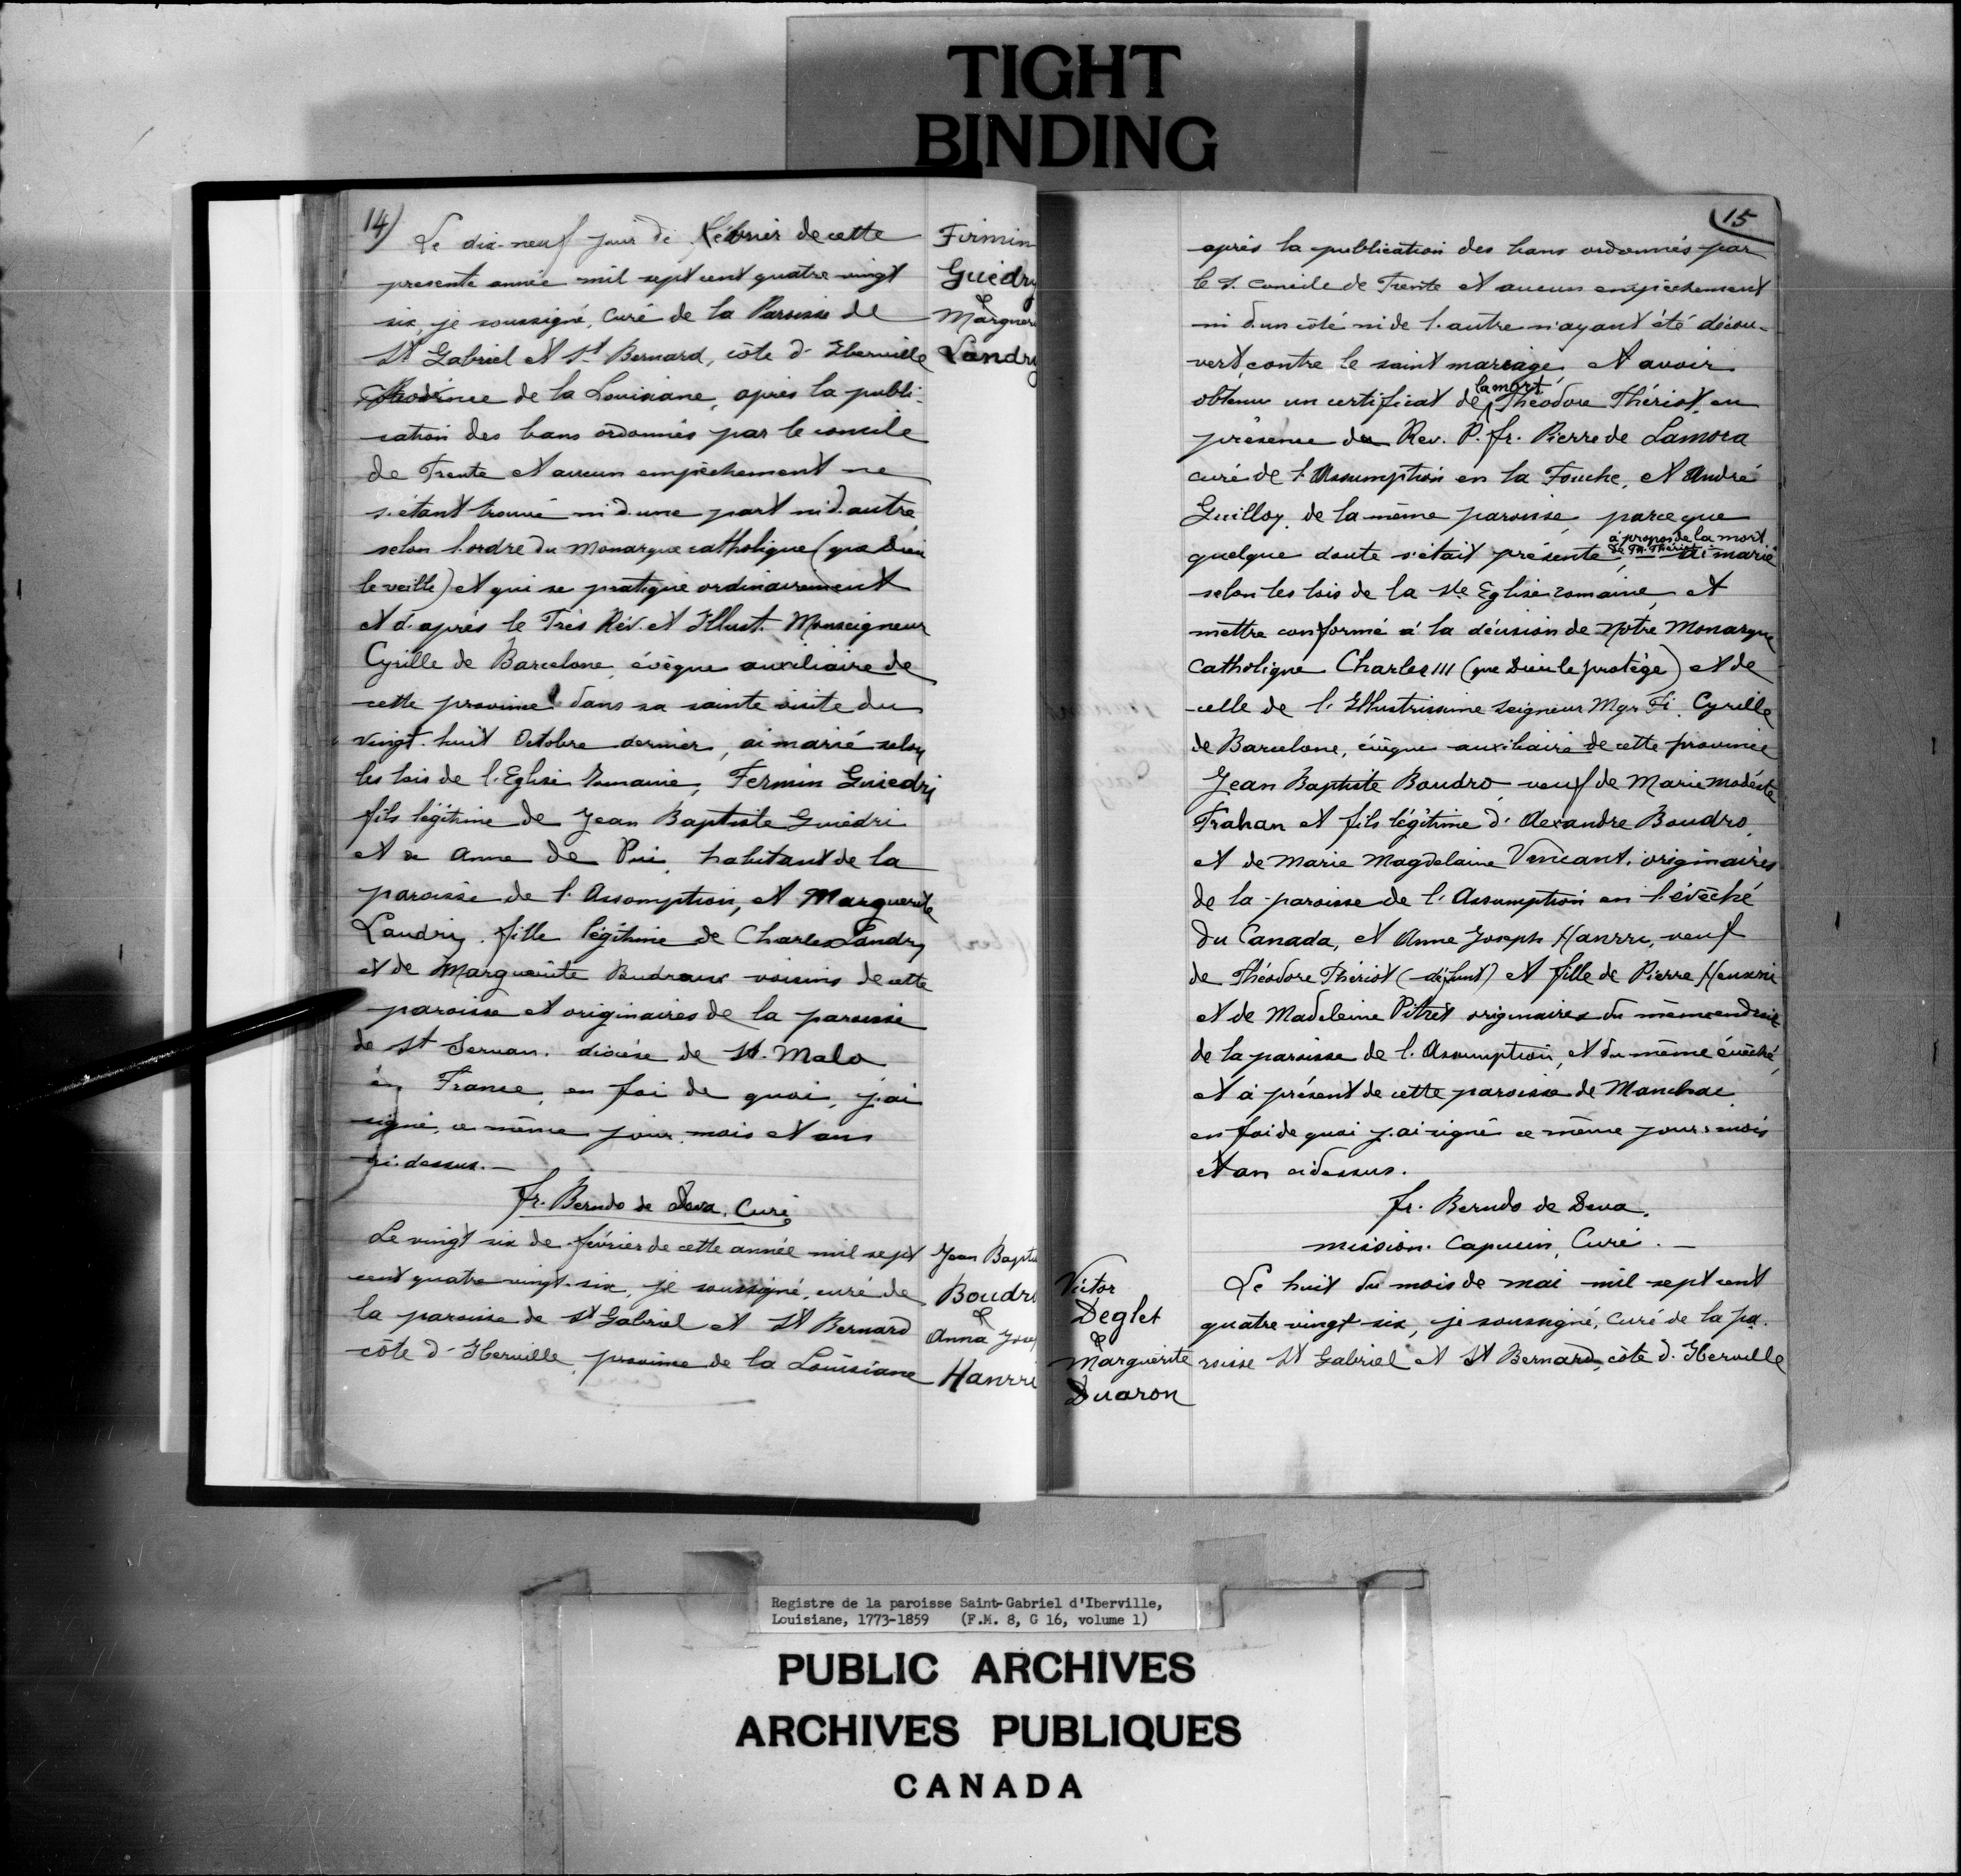 TIGHT
BINDING
14)
Le dix-neuf jour de Février de cette
presente année mil sept cent quatre vingt
six, je soussigné, Curé de la Paroisse de
St Gabriel et St Bernard, côte d'Iberville
Province de la Louisiane, après la publi-
cation des bans ordonnés par le concile
de Trente et aucun empêchement ne
s'étant trouvé ni d'une part ni d'autre
selon l'ordre du Monarque catholique (que Dieu
le veille) et qui se pratique ordinairement
et d'après le Très Rév. et Illust. Monseigneur
Cyrille de Barcelone, évêque auxiliaire de
cette province dans sa sainte visite du
vingt-huit Octobre dernier, ai marié selon
les lois de l'Eglise Romaine, Fermin Guiedri
fils légitime de Jean Baptiste Guiedri
et de Anne de Pui, habitant de la
paroisse de l'Assomption, et Marguerite
Laudry, fille légitime de Charles Landry
et de Marguerite Budraux voisins de cette
paroisse et originaires de la paroisse
de St Servan, diocèse de St. Malo
en France, en foi de quoi, j'ai
signé, ce même jour, mois et an
ci-dessus.—
fr. Berndo de Deva, Curé
Firmin
Guédry
&
Marguer
Landry
Le vingt six de février de cette année mil sept
cent quatre vingt-six, je soussigné, curé de
la paroisse de St Gabriel et St Bernard
côte d'Iberville, province de la Louisiane
Jean Baptis
Boudr
&
Anna Jose
Hanrri
15
après la publication des bans ordonnés par
le S. Concile de Trente et aucun empêchement
ni d'un côté ni de l'autre n'ayant été décou-
vert, contre le saint mariage et avoir
obtenu un certificat de la mort Théodore Thériot, en
présence du Rev. P. fr. Pierre de Lamora
curé de l'Assumption en la Fouche, et André
Guilloy, de la même paroisse, parce que
quelque doute s'était présenté, à propos de la mort
de Th. Theriot ai marié
selon les lois de la Ste Eglise romaine, et
mettre conformé à la décision de Notre Monarque
Catholique Charles III (que Dieu le protège) et de
celle de l'Illustrissime Seigneur Mgr Fi. Cyrille
de Barcelone, évêque auxiliaire de cette province
Jean Baptiste Boudro, veuf de Marie Modéste
Trahan et fils légitime d'Alexandre Boudro
et de Marie Magdelaine Vincant, originaires
de la paroisse de l'Assumption en l'évêché
du Canada, et Anne Joseph Hanrri, veuf
de Théodore Thériot (défunt) et fille de Pierre Heunri
et de Madeleine Pitret originaires du même endroit
de la paroisse de l'Assumption, et du même évêché,
et à présent de cette paroisse de Manchac
en foi de quoi j'ai signé ce même jour, mois
et an ci dessus.
fr. Berndo de Deva,
mission. Capucin, Curé.—
Victor
Deglet
&
Marguerite
Duaron
Le huit du mois de mai mil sept cent
quatre vingt six, je soussigné, Curé de la pa-
roisse St Gabriel et St Bernard, côte d'Iberville
Registre de la paroisse Saint-Gabriel d'Iberville,
Louisiane, 1773-1859 (F.M. 8, G 16, volume 1)
PUBLIC ARCHIVES
ARCHIVES PUBLIQUES
CANADA